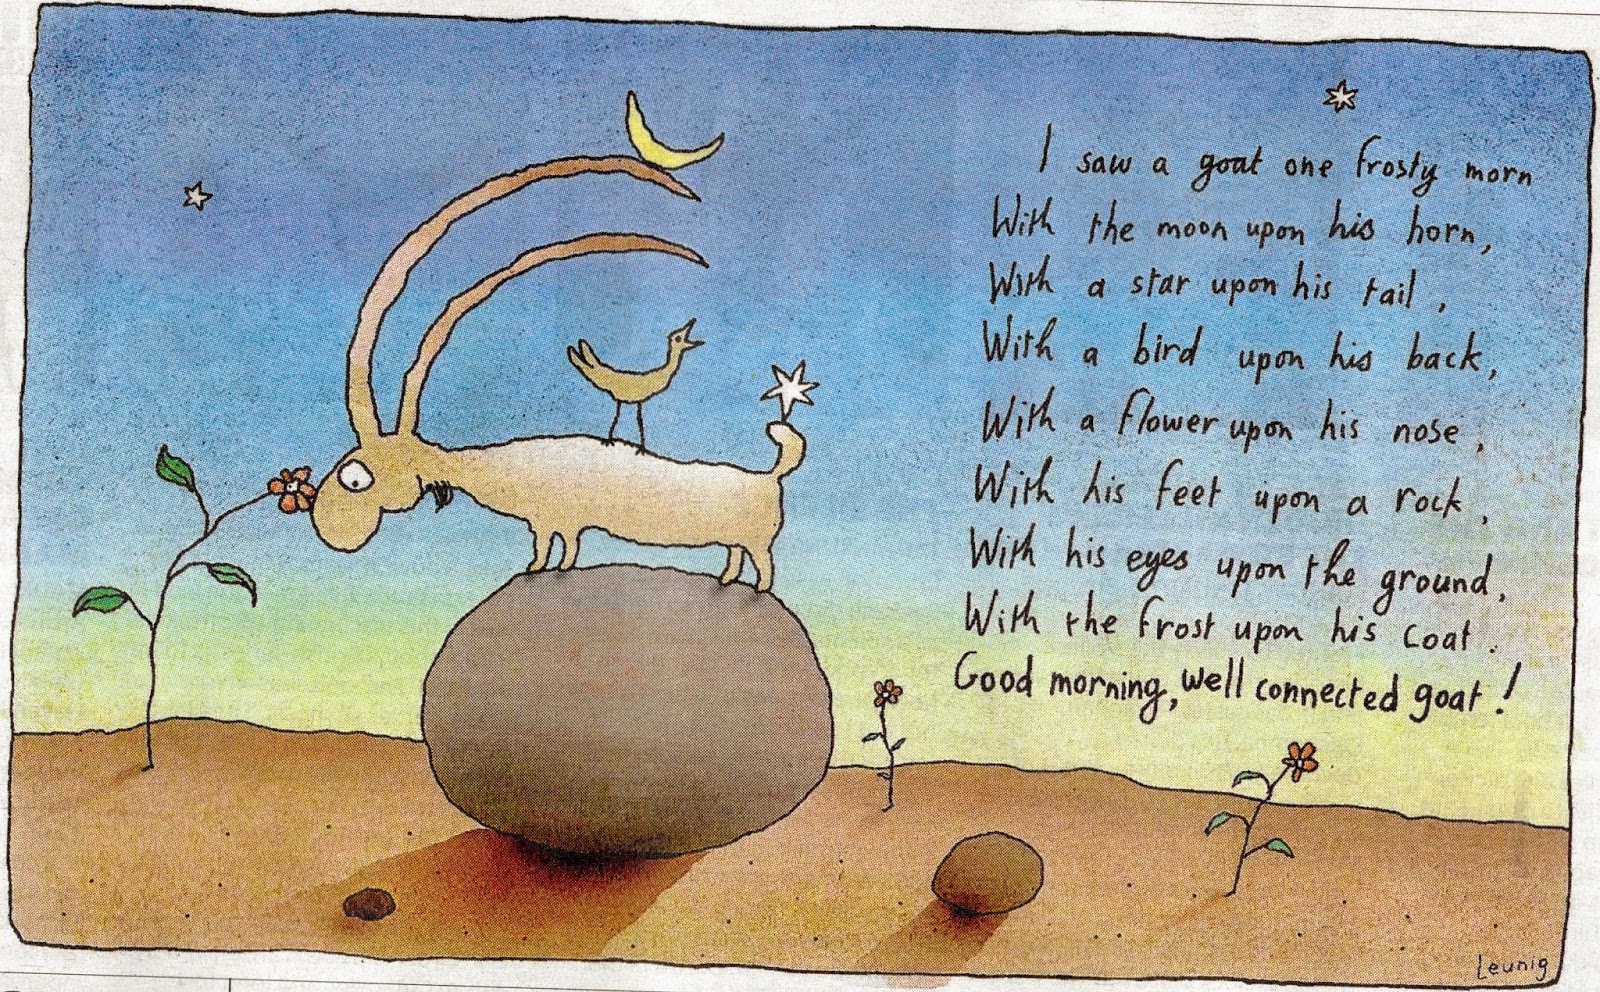 I saw a goat one frosty morn
With the moon upon his horn,
With a star upon his tail,
With a bird upon his back,
With a flower upon his nose,
With his feet upon a rock,
With his eyes upon the ground,
With the frost upon his coat.
Good morning, well connected goat!
Leunig